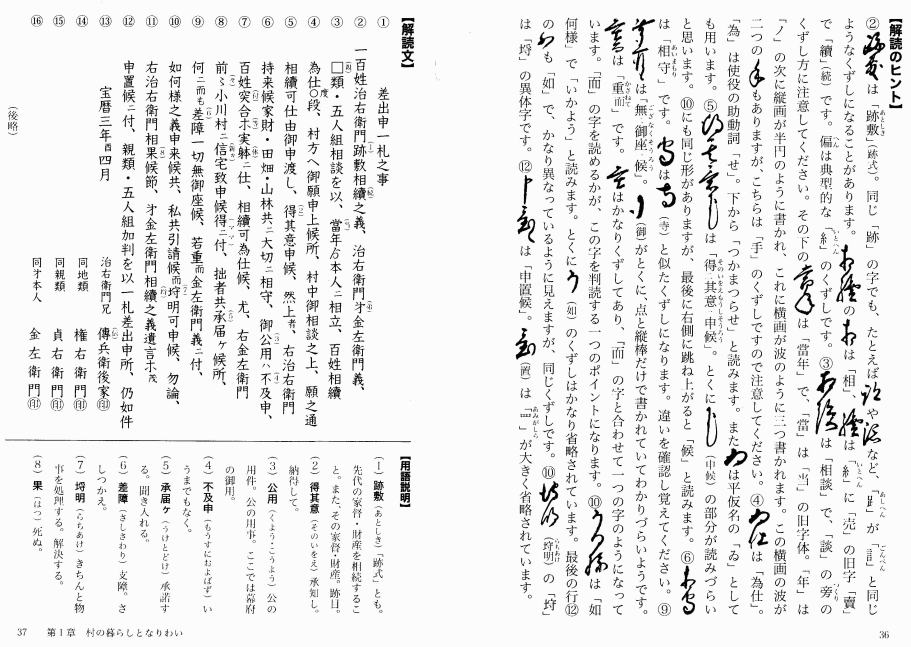 【解読のヒント】
②は「跡敷(跡式)」。同じ「跡」の字でも、たとえばやなど、「𧾷」が「訁」と同じ
ようなくずしになることがあります。のは「相」、は「糹」に「売」の旧字「賣」
で「續」(続)です。偏は典型的な「糹」のくずしです。③は「相談」で、「談」の旁の
くずし方に注意してください。その下のは「當年」で、「當」は「当」の旧字体。「年」は
「ノ」の次に縦画が半円のように書かれ、これに横画が波のように三つ書かれます。この横画の波が
二つのもありますが、こちらは「手」のくずしですので注意してください。④は「為仕」。
「為」は使役の助動詞「せ」。下から「つかまつらせ」と読みます。または平仮名の「ゐ」として
も用います。⑤は「得其意申候」。とくに(申候)の部分が読みづらい
と思います。⑩にも同じ形がありますが、最後に右側に跳ね上がると「候」と読みます。⑥
は「相守」です。は(寺)と似たくずしになります。違いを確認し覚えてください。⑨
は「無御座候」。(御)がとくに、点と縦棒だけで書かれていてわかりづらいようです。
は「重而」です。はかなりくずしてあり、「而」の字と合わせて一つの字のようになって
います。「而」の字を読めるかが、この字を判読する一つのポイントになります。⑩は「如
何様」で「いかよう」と読みます。とくに(如)のくずしはかなり省略されています。最後の行⑫
のも「如」で、かなり異なっているように見えますが、同じくずしです。⑩(埒明)の「埒」
は「埓」の異体字です。⑫は「申置候」。(置)は「罒」が大きく省略されています。
36
【解読文】
① 差出申一札之事
② 一百姓治右衛門跡敷相續之義、治右衛門弟金左衛門義、
③ □類・五人組相談を以、當年ゟ本人ニ相立、百姓相續
④ 為仕○段、村方へ御願申上候所、村中御相談之上、願之通
⑤ 相續可仕由御申渡し、得其意申候、然上者、右治右衛門
⑥ 持来候家財・田畑・山林共ニ大切ニ相守、御公用ハ不及申、
⑦ 百姓突合ホ実躰ニ仕、相續可為仕候、尤、右金左衛門
⑧ 前々小川村ニ信宅致申候得ニ付、拙者共承届ヶ候所、
⑨ 何ニ而も差障一切無御座候、若重而金左衛門義ニ付、
⑩ 如何様之義申来候共、私共引請候而埒明可申候、勿論、
⑪ 右治右衛門相果候節、弟金左衛門相續之義遺言ホ茂
⑫ 申置候ニ付、親類・五人組加判を以一札差出申所、仍如件
⑬ 宝暦三年酉四月 治右衛門兄 傳兵衛後家㊞
⑭ 同地類 権右衛門㊞
⑮ 同親類 貞右衛門㊞
⑯ 同弟本人 金左衛門㊞
(後略)
【用語説明】
(1) 跡敷(あとしき)「跡式」とも。
先代の家督・財産を相続するこ
と。また、その家督・財産。跡目。
(2) 得其意(そのいをえ)承知し。
納得して。
(3) 公用(くよう・こうよう)公の
用件。公の用事。ここでは幕府
の御用。
(4) 不及申(もうすにおよばず)い
うまでもなく。
(5) 承届ヶ(うけとどけ)承諾す
る。聞き入れる。
(6) 差障(さしさわり)支障。さ
しつかえ。
(7) 埒明(らちあけ)きちんと物
事を処理する。解決する。
(8) 果(はつ)死ぬ。
37 第1章 村の暮らしとなりわい